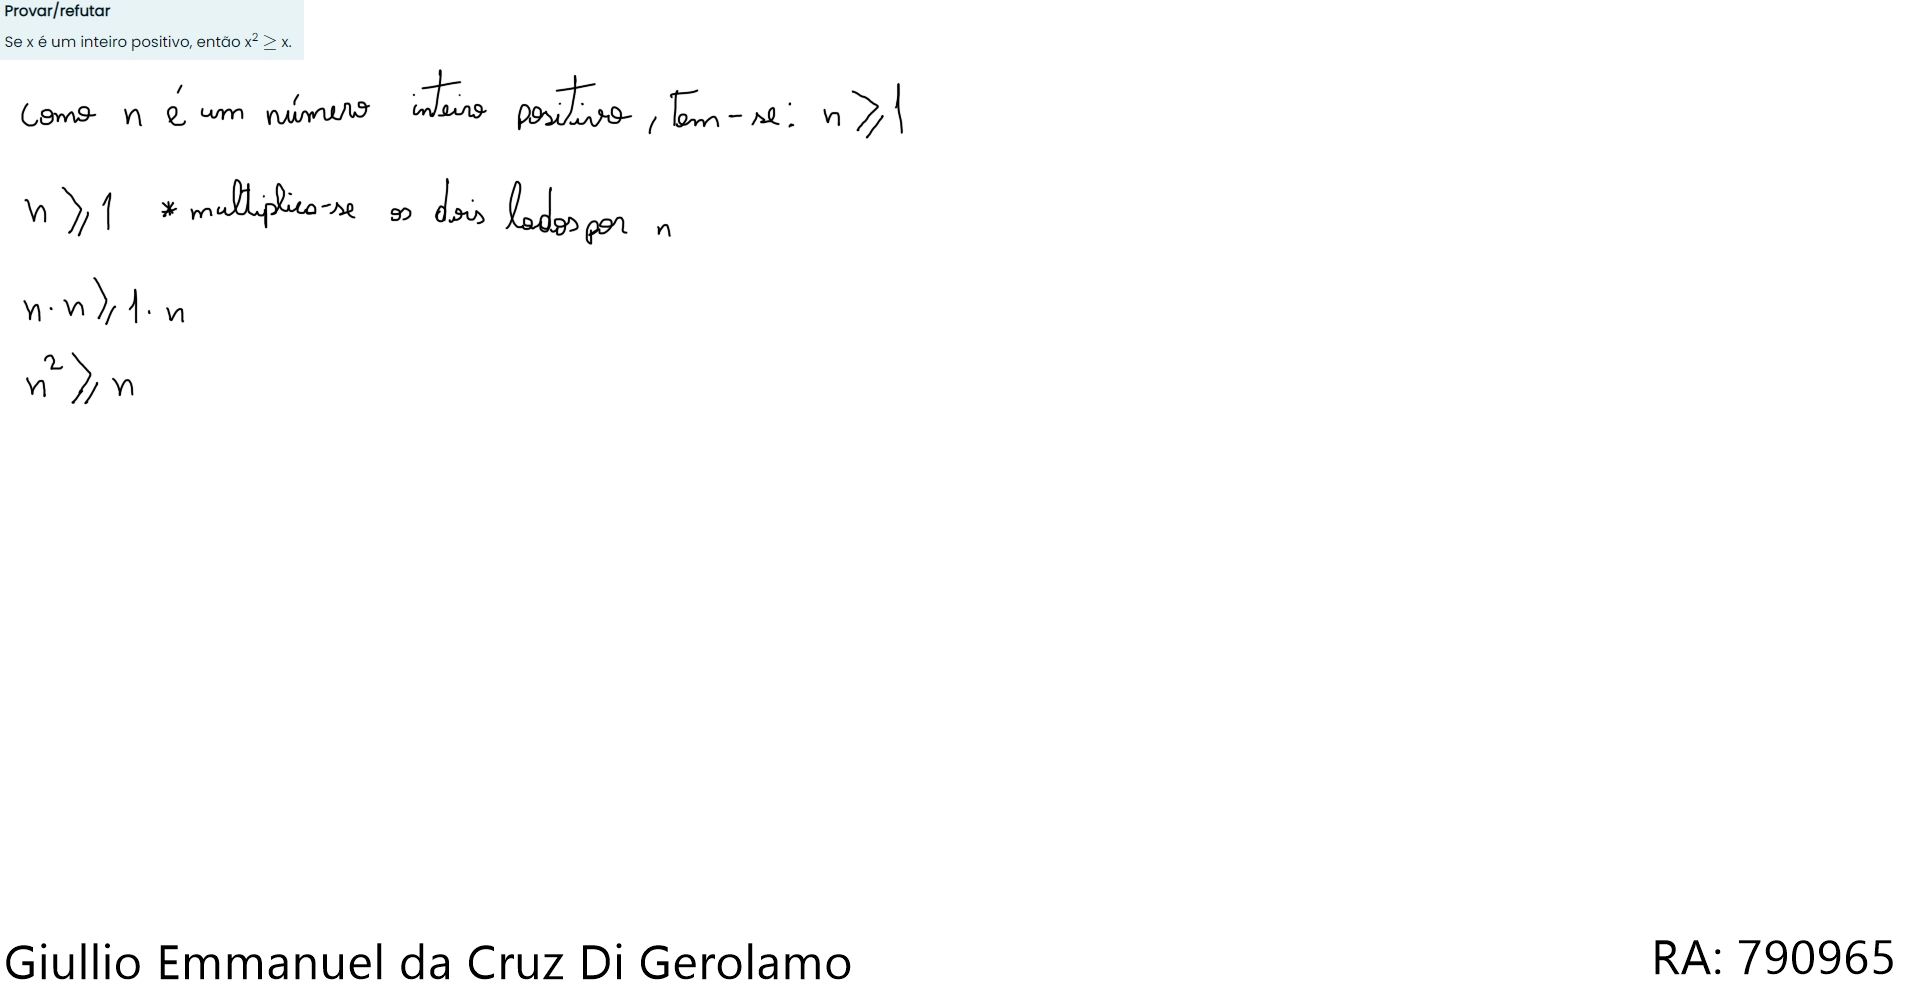 Provar/refutar
Se x é um inteiro positivo, então x² ≥ x.
Como n é um número inteiro positivo, tem-se: n ≥ 1
n ≥ 1 * multiplica-se os dois lados por n
n · n ≥ 1 · n
n² ≥ n
Giullio Emmanuel da Cruz Di Gerolamo
RA: 790965